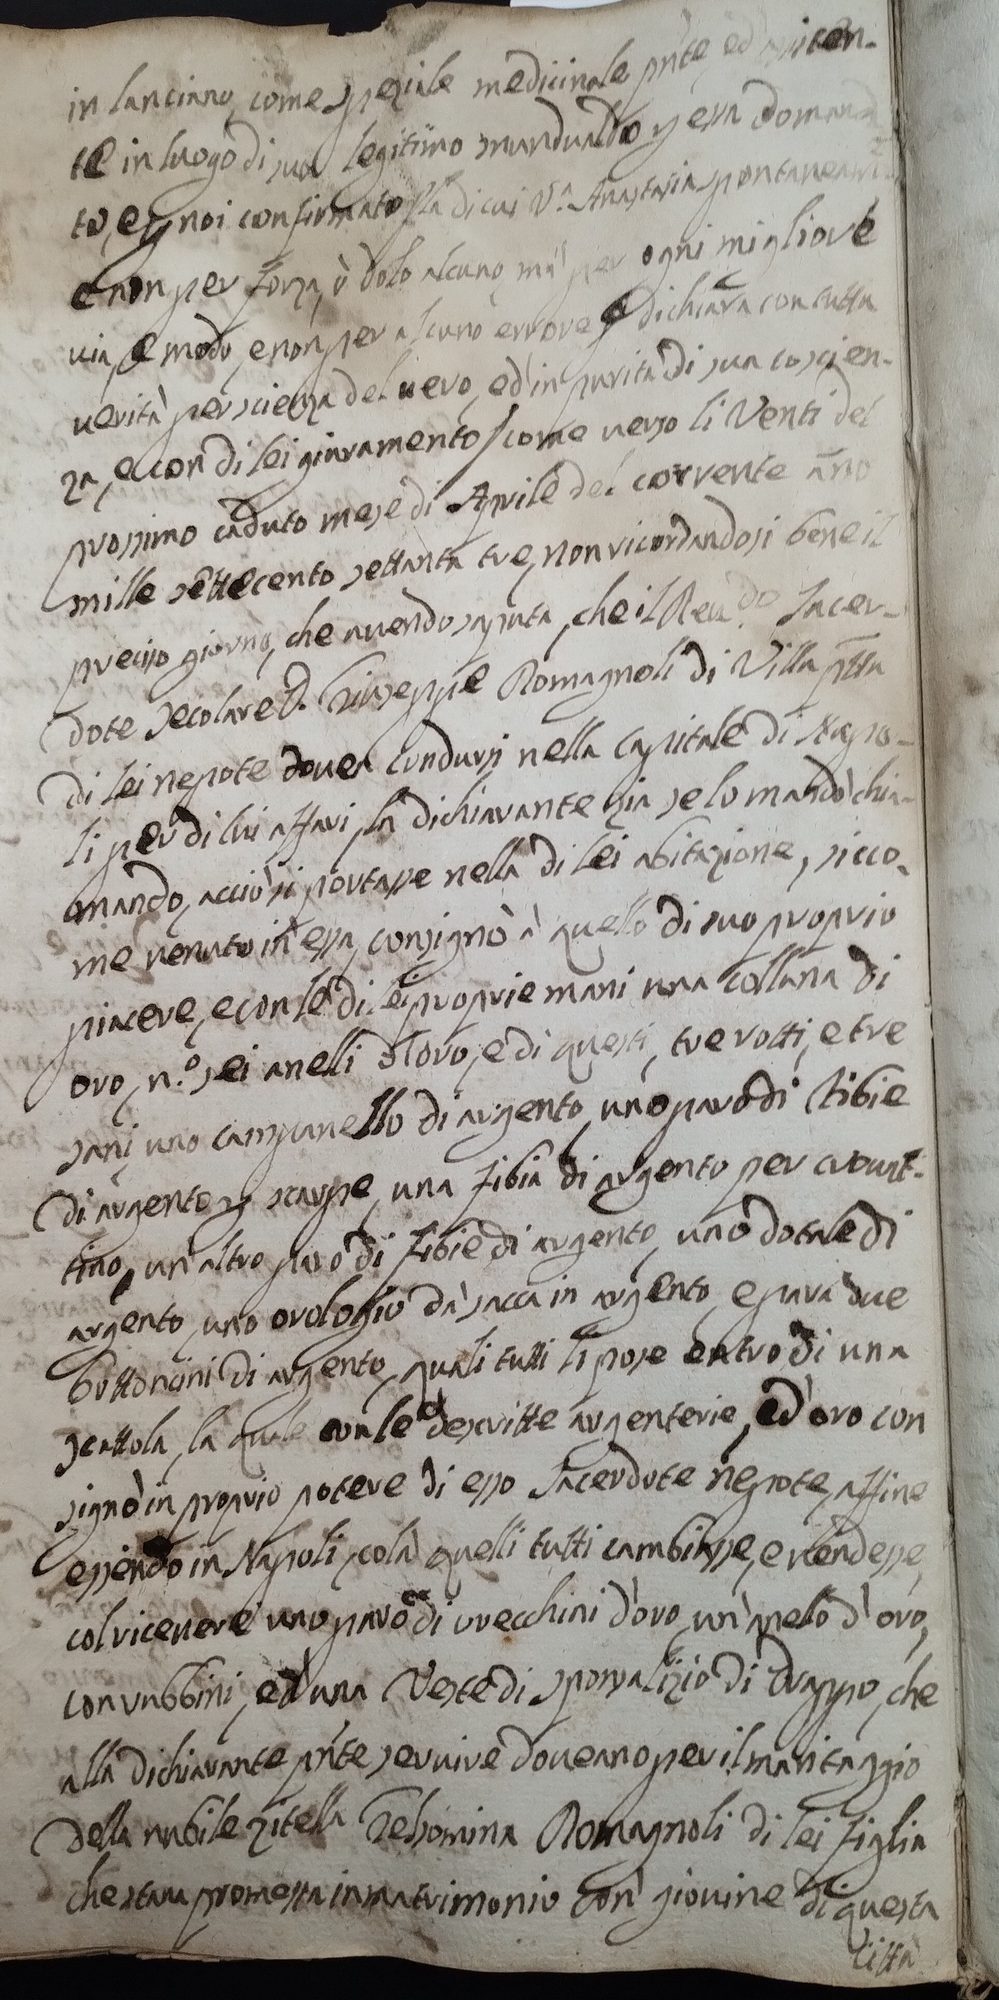 in Lanciano, come speziale medicinale pnte, ed assisten-
te in luogo di suo legitimo mundualdo p essa domanda-
to, e p noi confirmato, la di cui Da. Anastasia spontaneamte.
e non per forza, ò dolo alcuno, mà per ogni migliore
via, e modo, e non per alcuno errore, dichiara con tutta
verità per scienza del vero, ed in purità di sua coscien-
za, e con di lei giuramento, come verso li Venti del
prossimo caduto mese di Aprile del corrente anno
mille settecento settanta tre, non ricordandosi bene il
preciso giorno, che avendo saputa, che il Revdo. Sacer-
dote secolare D. Giuseppe Romagnoli di Villa ptta
di lei nepote dovea condursi nella Capitale di Napo-
li per di lui affari, la dichiarante zia se lo mandò chia-
mando, acciò si portasse nella di lei abitazione, sicco-
me venuto in essa, consignò à quello di suo proprio
piacere, e con le di lei proprie mani una collana di
oro, n.o sei anelli d'oro, e di questi, tre rotti, e tre
sani, uno campanello di argento, uno paro di fibie
di argento p scarpe, una fibia di argento per cravat-
tino, un'altro paro di fibie di argento, uno dotale di
argento, uno orologio dà sacca in argento, e para due
bottoncini di argento, quali tutti li pose entro di una
scattola, la quale con le descritte argenterie, ed oro con
signò in proprio potere di esso Sacerdote nepote, affine
essendo in Napoli, colà quelli tutti cambiasse, e vendesse,
col ricevere uno paro di orecchini d'oro, un'anello d'oro,
con rubbini, ed una Veste di sponsalizio di drappo, che
alla dichiarante pnte servire doveano per il maritaggio
della nubile zitella Gelsomina Romagnoli di lei figlia
che stava promessa in matrimonio con giovine di questa
Città